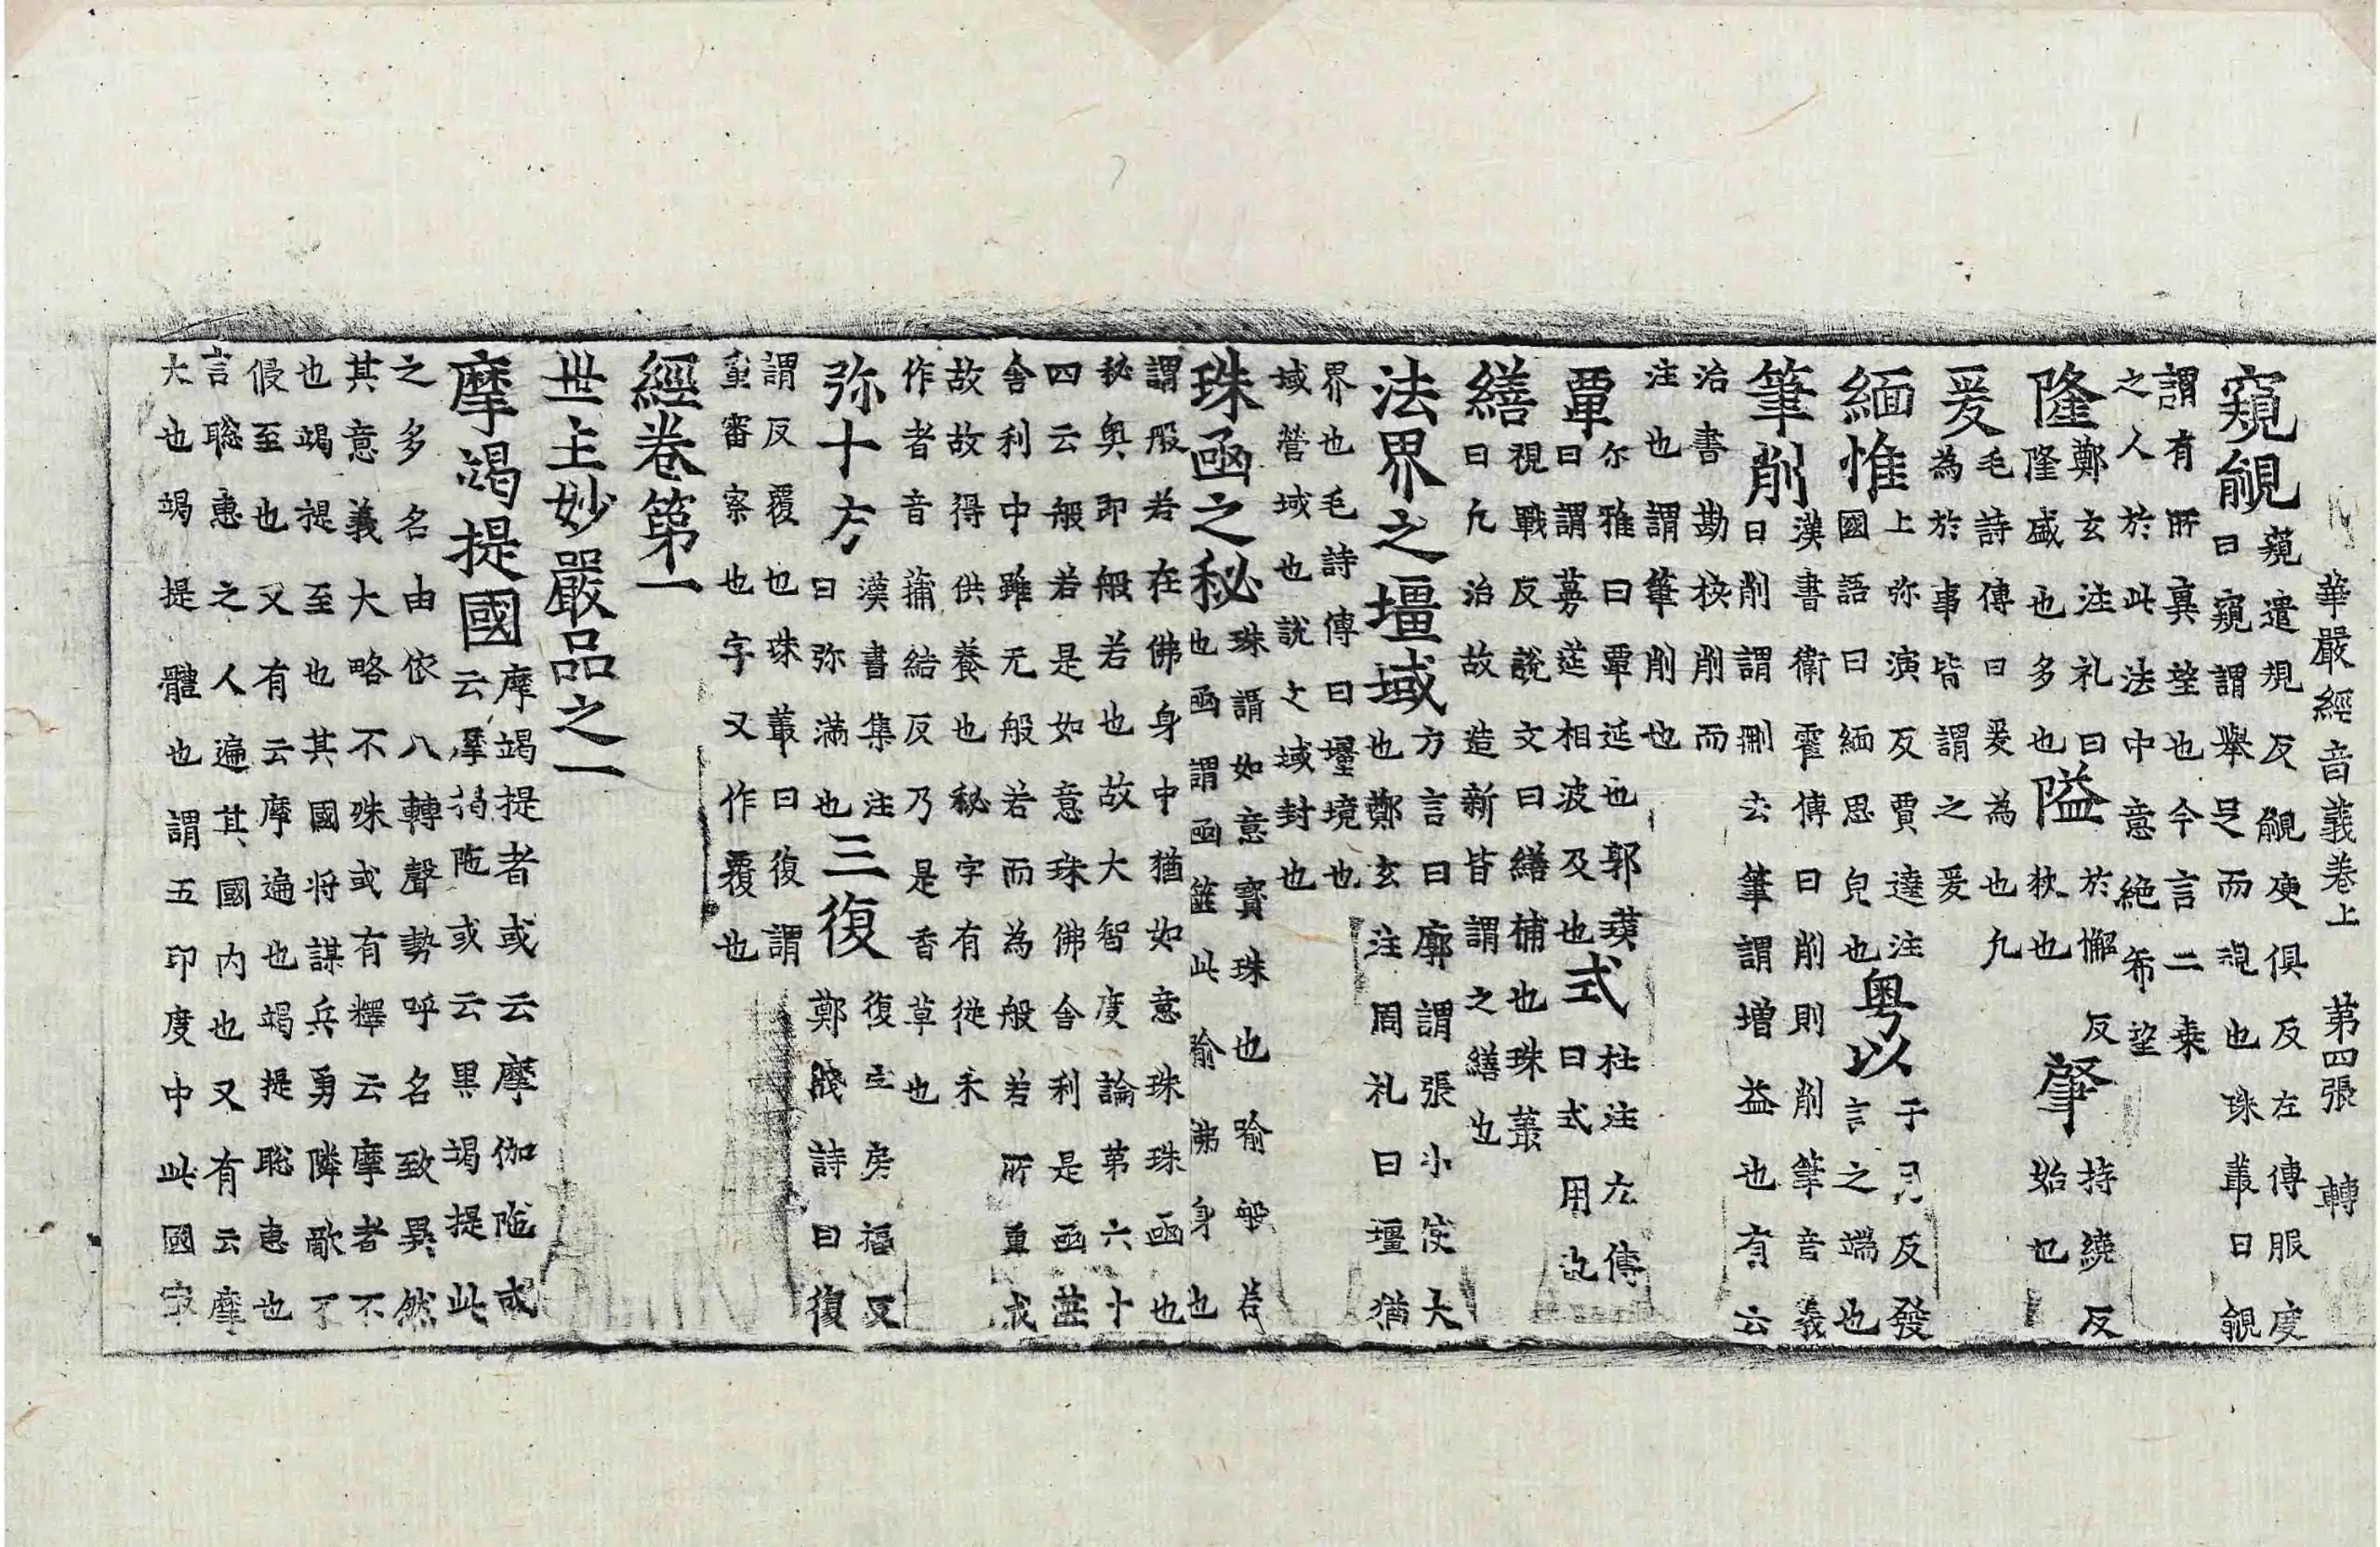 華嚴經音義卷上　第四張　轉
窺覦
窺遣規反覦庾俱反左傳服虔
曰窺謂舉足而視也珠叢曰覦
謂有所冀望也今言二乗
之人於此法中意絶希望
隆
鄭玄注礼曰
隆盛也多也
隘
於懈反
狄也
肇
持繞反
始也
爰
毛詩傳曰爰為也凡
為於事皆謂之爰
緬惟
上弥演反賈逵注
國語曰緬思皃也
粤以
于月反發
言之端也
筆削
漢書衛霍傳曰削則削筆音義
曰削謂刪去筆謂増益也有云
治書勘挍削而
注也謂筆削也
覃
尔雅曰覃延也郭璞
曰謂蔓莚相波及也
式
杜注左傳
曰式用也
繕
視戰反說文曰繕補也珠叢
曰凡治故造新皆謂之繕也
法界之壃域
方言曰廓謂張小使大
也鄭玄注周礼曰壃猶
界也毛詩傳曰壃境也
域營域也說文域封也
珠函之秘
珠謂如意寶珠也喻般若
也函謂函篋此喻佛身也
謂般若在佛身中猶如意珠珠函也
秘奥即般若也故大智度論第六十
四云般若是如意珠佛舍利是函莚
舍利中雖无般若而為般若所重或
故故得供養也秘字有從禾
作者音蒲結反乃是香草也
弥十方
漢書集注
曰弥滿也
三復
復主房福反
鄭牋詩曰復
謂反覆也珠叢曰復謂
重審察也字又作覆也
經卷第一
世主妙嚴品之一
摩竭提國
摩竭提者或云摩伽陁或
云摩揭陁或云黑竭提此
之多名由依八轉聲勢呼名致異然
其意義大略不殊或有釋云摩者不
也竭提至也其國将謀兵勇隣敵不
侵至也又有云摩遍也竭提聡惠也
言聡惠之人遍其國内也又有云摩
大也竭提體也謂五印度中此國㝡